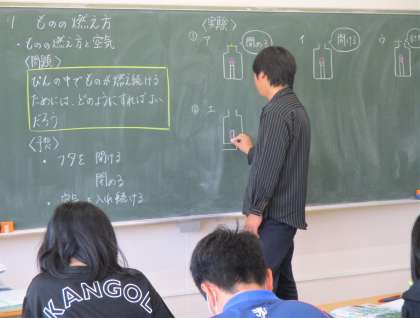 1 ものの燃え方
・ものの燃え方と空気
〈問題〉
びんの中でものが燃え続ける
ためには、どのようにすればよい
だろう
〈予想〉
・フタを 開ける
閉める
・空気を入れ続ける
〈実験〉
① ア
閉める
イ
開ける
ウ
② エ
KANGOL